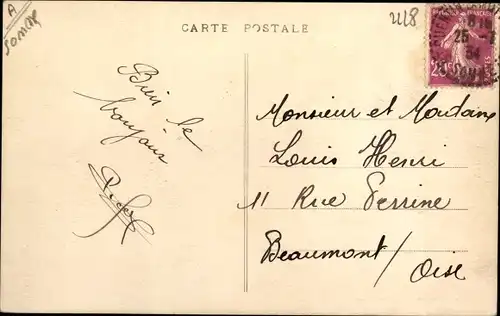 A
Somme
CARTE POSTALE
2218
25
54
20
Bien le
bonjour
Monsieur et Madame
Louis Henri
11 Rue Perrine
Beaumont/
Oise